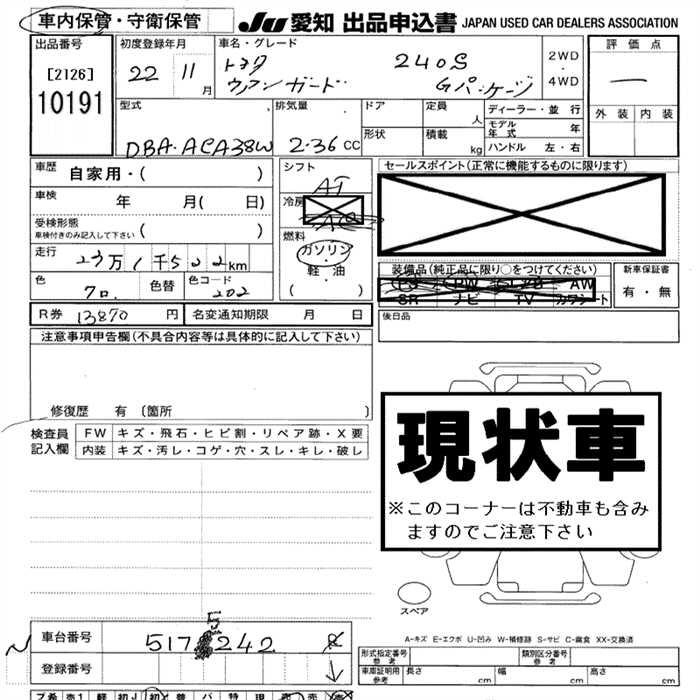 車内保管・守衛保管 JU 愛知 出品申込書 JAPAN USED CAR DEALERS ASSOCIATION
出品番号 [2126] 10191
初度登録年月 22 11月
車名・グレード トヨタ 240S
ヴァンガード Gパッケージ
2WD・4WD
評価点 ―
外装 内装
型式 DBA-ACA38W
排気量 2.36 CC
ドア 定員 人
形状 積載 kg
ディーラー・並行
モデル年式 年
ハンドル 左・右
車歴 自家用・( )
車検 年 月( 日)
受検形態 ( )
車検付きのみ記入して下さい
走行 23万1千522km
色 クロ 色替 色コード 202
シフト AT
冷房 AC
燃料 ガソリン・軽・油 ( )
セールスポイント(正常に機能するものに限ります)
装備品(純正品に限り○をつけてください)
PS PW AW
SR ナビ TV カワシート
新車保証書 有・無
R券 13870円 名変通知期限 月 日
後日品
注意事項申告欄(不具合内容等は具体的に記入して下さい)
修復歴 有 〔箇所 〕
検査員記入欄
FW キズ・飛石・ヒビ割・リペア跡・X要
内装 キズ・汚レ・コゲ・穴・スレ・キレ・破レ
現状車
※このコーナーは不動車も含み
ますのでご注意下さい
スペア
A-キズ E-エクボ U-凹み W-補修跡 S-サビ C-腐食 XX-交換済
車台番号 517 5 242
登録番号
形式指定番号 参考 類別区分番号 参考
車庫証明用参考 長さ cm 幅 cm 高さ cm